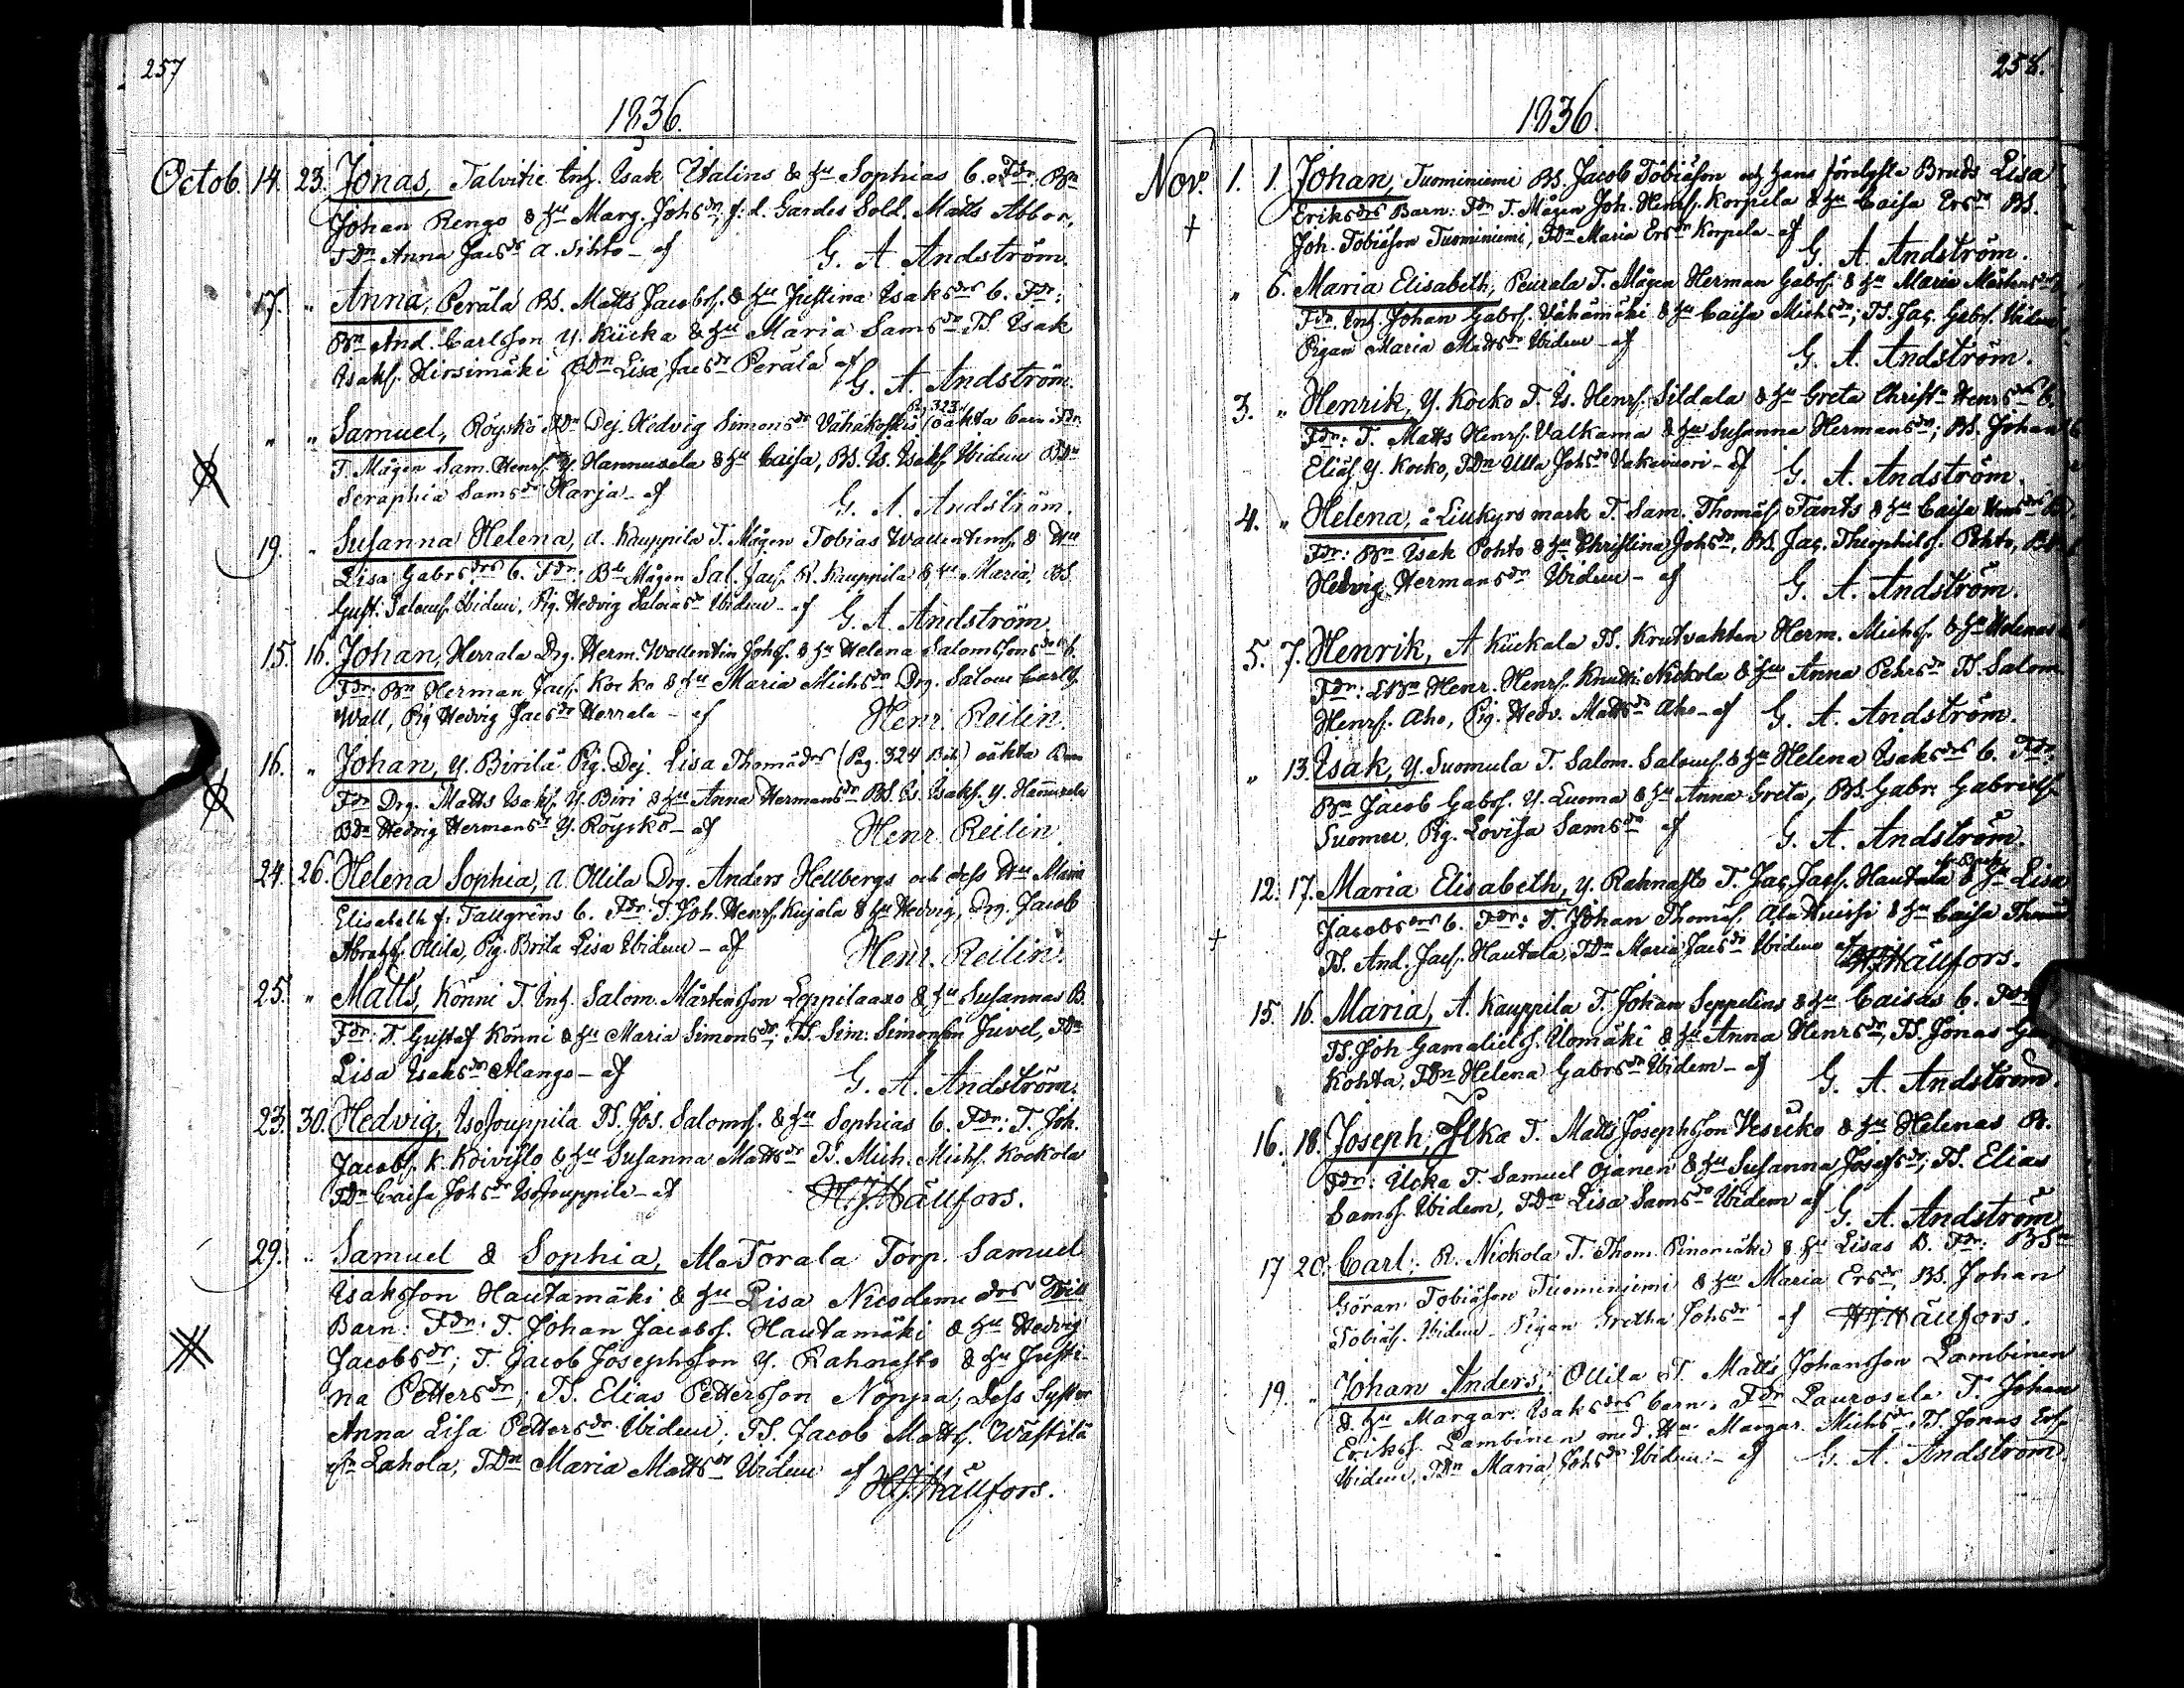 257
1836.
Octob. 14. 23. Jonas, Talvitie Inh. Isak Italins & hu Sophias b. Fdr. Bn
Johan Rengo & hu Marg. Johsdr, f: d. Gardes Sold. Matts Abbor,
TDn Anna Jacsdr a. Sihto - af G. A. Andström.
17. " Anna, Perälä BS. Matts Jacobss. & hu Justina Isaksdrs b. Fdr:
Bn And. Carlsson Y. Kiicka & hu Maria Samsdr, TS. Isak
Isakss. Hirsimäki, TDn Lisa Jacsdr Perälä af G. A. Andström.
" " Samuel, Röyskö TDn Dej. Hedvig Simonsdr Vähäkoskis (Pag. 323) oäkta barn Fdr.
T. Mågen Sam. Henrs. Y. Hannuxela & hu Caisa, BS. Is. Isakss. Ibidem BDn
Seraphia Samsdr Harja - af G. A. Andström.
19. " Susanna Helena, a. Kauppila T. Mågen Tobias Wallentinss. & Hu
Lisa Gabrsdrs b. Fdr: Bn Mågen Sal. Jacss. R. Kauppila & hu Maria, BS.
Gust. Saloms. Ibidem, Pig. Hedvig Salomsdr Ibidem - af G. A. Andström.
15. 16. Johan, Herrala Drg. Herm. Wallentin Johss. & hu Helena Salomssonsdrs b.
Fdr: Bn Herman Jacss. Kocko & hu Maria Michsdr Drg. Salom Carlss.
Wall, Pig Hedvig Jacsdr Herrala - af Henr. Reilin.
16. " Johan, Y. Birilä Pig. Dej. Lisa Thomädrs (Pag. 324 Bib) oäkta Barn
Fdr Drg. Matts Isakss. Y. Biri & hu Anna Hermansdr BS. Is. Isakss. Y. Hannuxela
BDn Hedvig Hermansdr Y. Röyskö - af Henr. Reilin.
24. 26. Helena Sophia, a Ollila Drg. Anders Hellbergs och dess Hu Maria
Elisabeth f. Tallgréns b. Fdr: T. Joh. Henrs. Kujala & hu Hedvig, Drg. Jacob
Abrahss. Ollila, Pig. Brita Lisa Ibidem - af Henr. Reilin.
25. " Matts, Könni T. Inh. Salom. Mårtensson Loppilaaro & hu Susannas B.
Fdr: T. Gustaf Könni & hu Maria Simonsdr; TS. Sim: Simonsson Juvel, TDn
Lisa Isaksdr Alango - af G. A. Andström.
23. 30. Hedvig, IsoJouppila TS. Jos. Saloms. & hu Sophias b. Fdr: T. Joh.
Jacobs. K. Koivisto & hu Susanna Mattsdr TS. Mich. Michs. Kockola
TDn Caisa Johsdr IsoJouppila - af H. J. Hällfors.
29. " Samuel & Sophia, AlaTorala Torp. Samuel
Isaksson Hautamäki & hu Lisa Nicodemi drs Tvil.
Barn: Fdr: T. Johan Jacobs. Hautamäki & hu Hedvig
Jacobsdr; T. Jacob Josephsson Y. Rahnasto & hu Justi-
na Pettersdr; TS. Elias Pettersson Noppa, dess Syster
Anna Lisa Pettersdr Ibidem; TS. Jacob Mattss. Wästilä
från Lahola, TDn Maria Mattsdr Ibidem af H. J. Hällfors.
258.
1836.
Nov. 1. 1. Johan, Tuominiemi BS. Jacob Tobiäson och hans förelofta Bruds Lisa
Eriksdrs Barn: Fdr T. Mågen Joh. Henrss. Korpela & hu Caisa Ersdr BS.
Joh. Tobiäson Tuominiemi, TDn Maria Ersdr Korpela - af G. A. Andström.
" 6. Maria Elisabeth, Peurala T. Mågen Herman Gabrs. & hu Maria Mårtensdrs
Fdr. Inh. Johan Gabrs. Vähämäki & hu Caisa Michsdr; TS. Jac. Gabrs. Ibidem,
Pigan Maria Mattsdr Ibidem - af G. A. Andström.
3. " Henrik, Y. Kocko T. Is. Henrs. Sildala & hu Greta Christn Henrsdrs b.
Fdr: T. Matts Henrs. Valkama & hu Susanna Hermansdr; BS. Johan
Eliäs. Y. Kocko, TDn Ulla Johsdr Vakevuori - af G. A. Andström.
4. " Helena, å Liukyro mark T. Sam. Thomäs. Fants & hu Caisa
Fdr: Bn Isak Pohto & hu Christina Johsdr, BS. Jac. Theophils. Pohto,
Hedvig Hermansdr Ibidem - af G. A. Andström.
5. 7. Henrik, A Kiickala TS. Krutvakten Herm. Michss. & hu Helenas
Fdr: LBn Henr. Henrs. Knuuti Nickola & hu Anna Pehrsdr TS. Salom
Henrs. Aho, Pig. Hedv. Mattsdr Aho - af G. A. Andström.
" 13. Isak, Y. Suomula T. Salom. Saloms. & hu Helena Isaksdrs b. Fdr:
Bn Jacob Gabrs. Y. Luoma & hu Anna Greta, BS. Gabr. Gabrielss.
Suomu, Pig. Lovisa Samsdr af G. A. Andström.
12. 17. Maria Elisabeth, Y. Rahnasto T. Jac. Jacs. Hautala & hu Lisa
Jacobsdrs b. Fdr: T. Johan Thomäs. Ala Huissi & hu Caisa
TS. And. Jacs. Hautala, TDn Maria Jacsdr Ibidem af H. J. Hällfors.
15. 16. Maria, A. Kauppila T. Johan Seppelins & hu Caisas b. Fdr
TS. Joh Gamaliels. Ulomäki & hu Anna Henrsdr, TS. Jonas
Kohta, TDn Helena Gabrsdr Ibidem - af G. A. Andström.
16. 18. Joseph, Ilka T. Matts Josephsson Vesiiko & hu Helenas B.
Fdr: Ilcka T. Samuel Ojanen & hu Susanna Josefsdr, TS. Elias
Sams. Ibidem, TDn Lisa Samsdr Ibidem af G. A. Andström
17 20. Carl, R. Nickola T. Thom. Pinomäki & hu Lisas B. Fdr:
Göran Tobiäson Tuominiemi & hu Maria Ersdr, BS. Johan
Tobiäs. Ibidem - Pigan Gretha Johsdr af H. J. Hällfors.
19. " Johan Anders, Ollila T. Matts Johansson Lambinen
& hu Margar. Isaksdrs barn. Fdr Laurosela T. Johan
Erikss. Lambinen med Hu Margar. Michsdr, TS. Jonas Ers.
Ibidem, TDn Maria Johsdr Ibidem - af G. A. Andström.